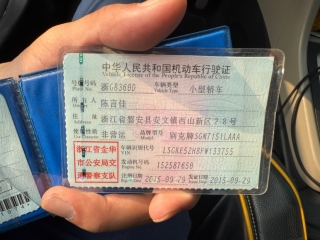 中华人民共和国机动车行驶证
Vehicle License of the People's Republic of China
号牌号码 浙G836BD 车辆类型 小型轿车
Plate No. Vehicle Type
所有人 陈言佳
Owner
住址 浙江省磐安县安文镇西山新区28号
Address
使用性质 非营运 品牌型号 别克牌SGM7151LAAA
浙江省金华
市公安局交
通警察支队
车辆识别代号 LSGKE52H8FW133755
VIN
发动机号码 152587650
Engine No.
注册日期 2015-09-29 发证日期 2015-09-29
Register Date Issue Date